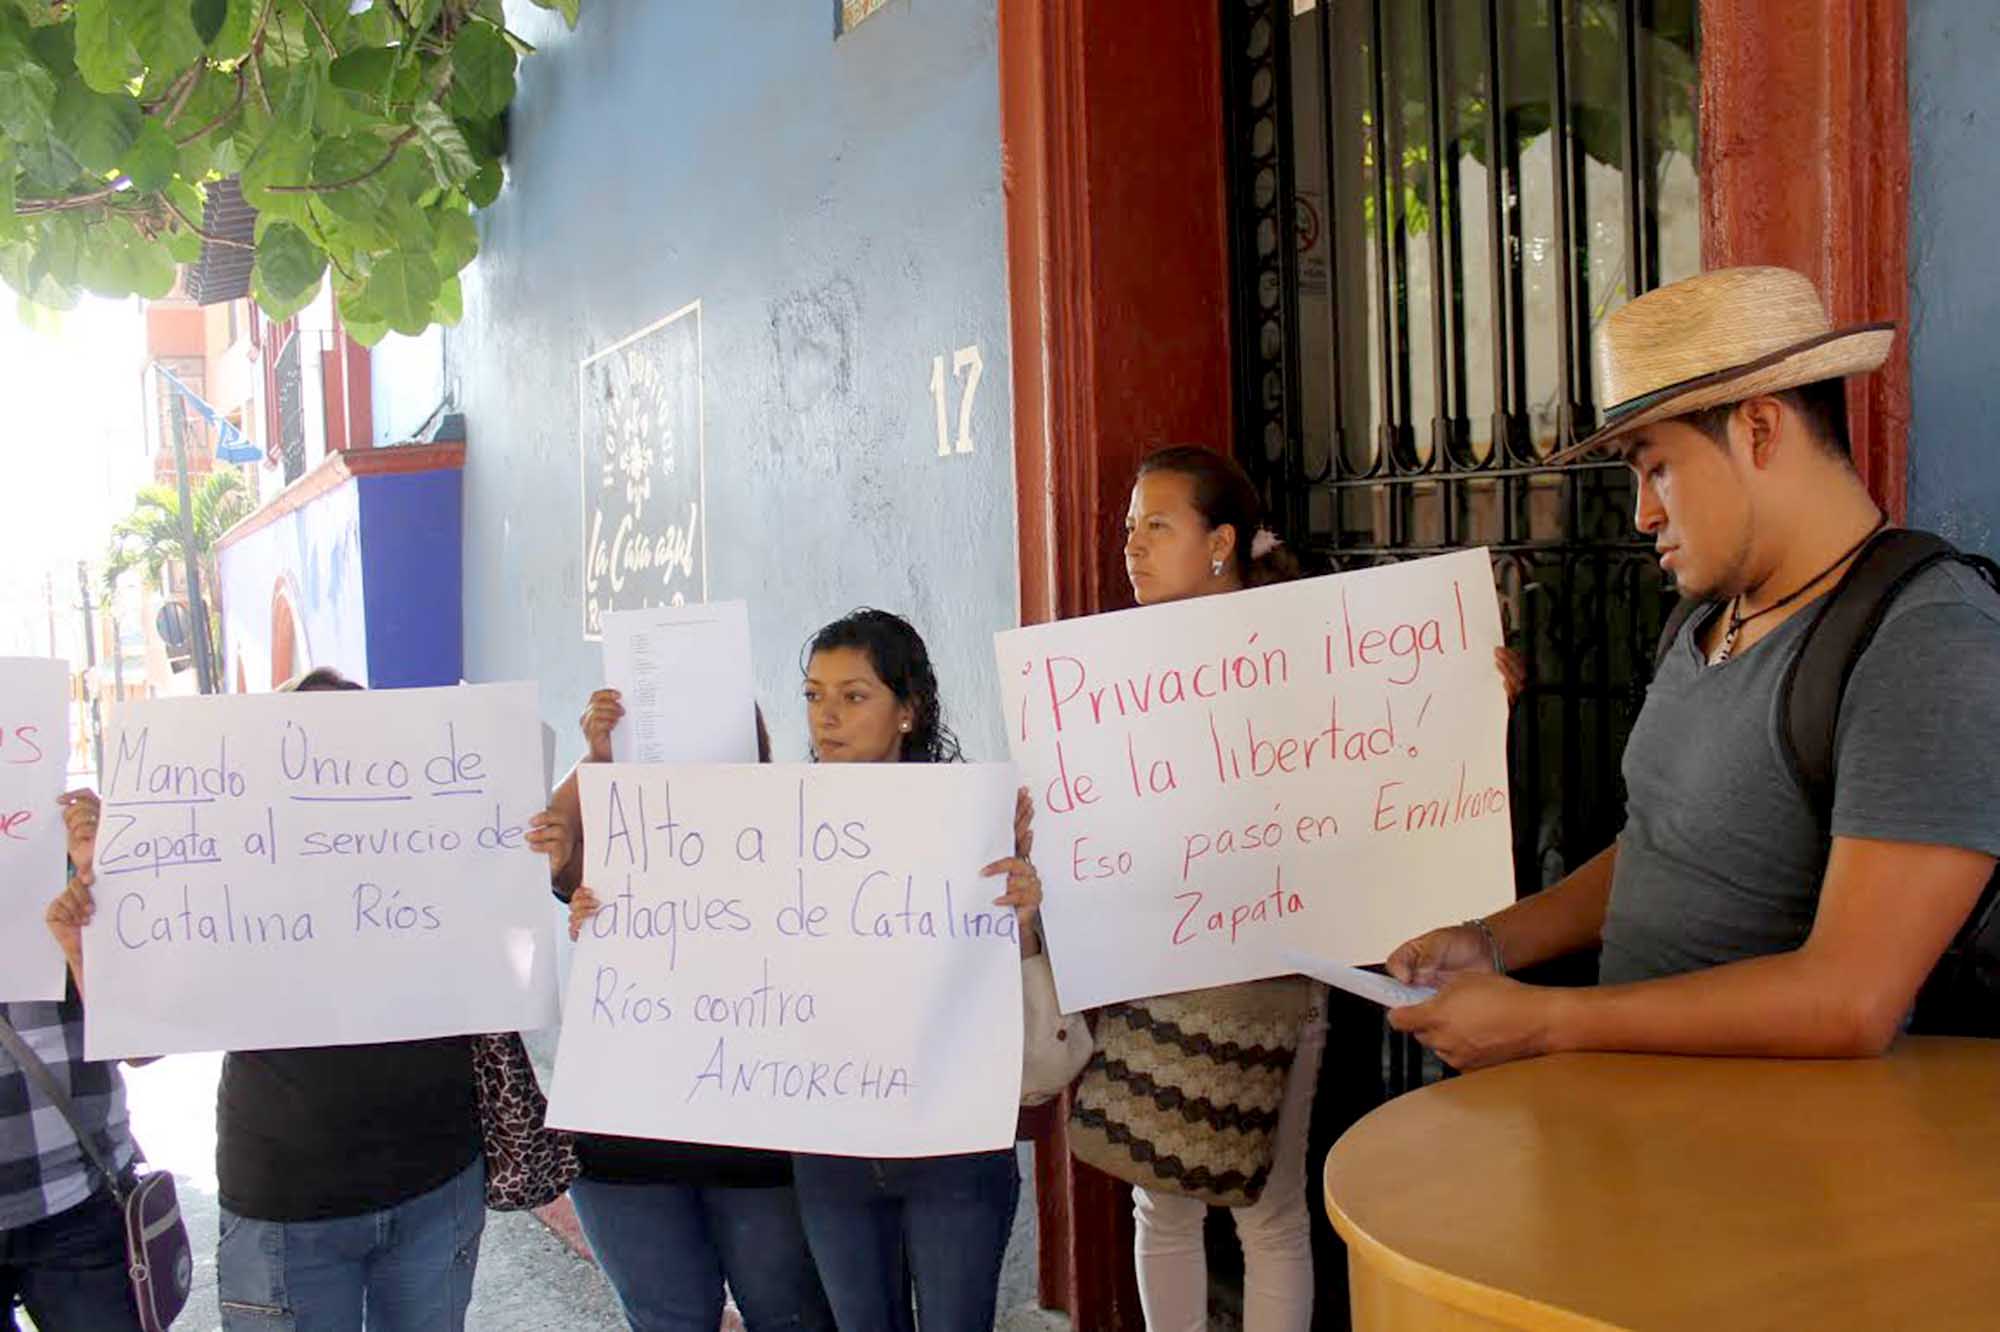 Mando Único de
Zapata al servicio de
Catalina Ríos
Alto a los
ataques de Catalina
Ríos contra
ANTORCHA
¡Privación ilegal
de la libertad!
Eso pasó en Emiliano
Zapata
17
La Casa azul